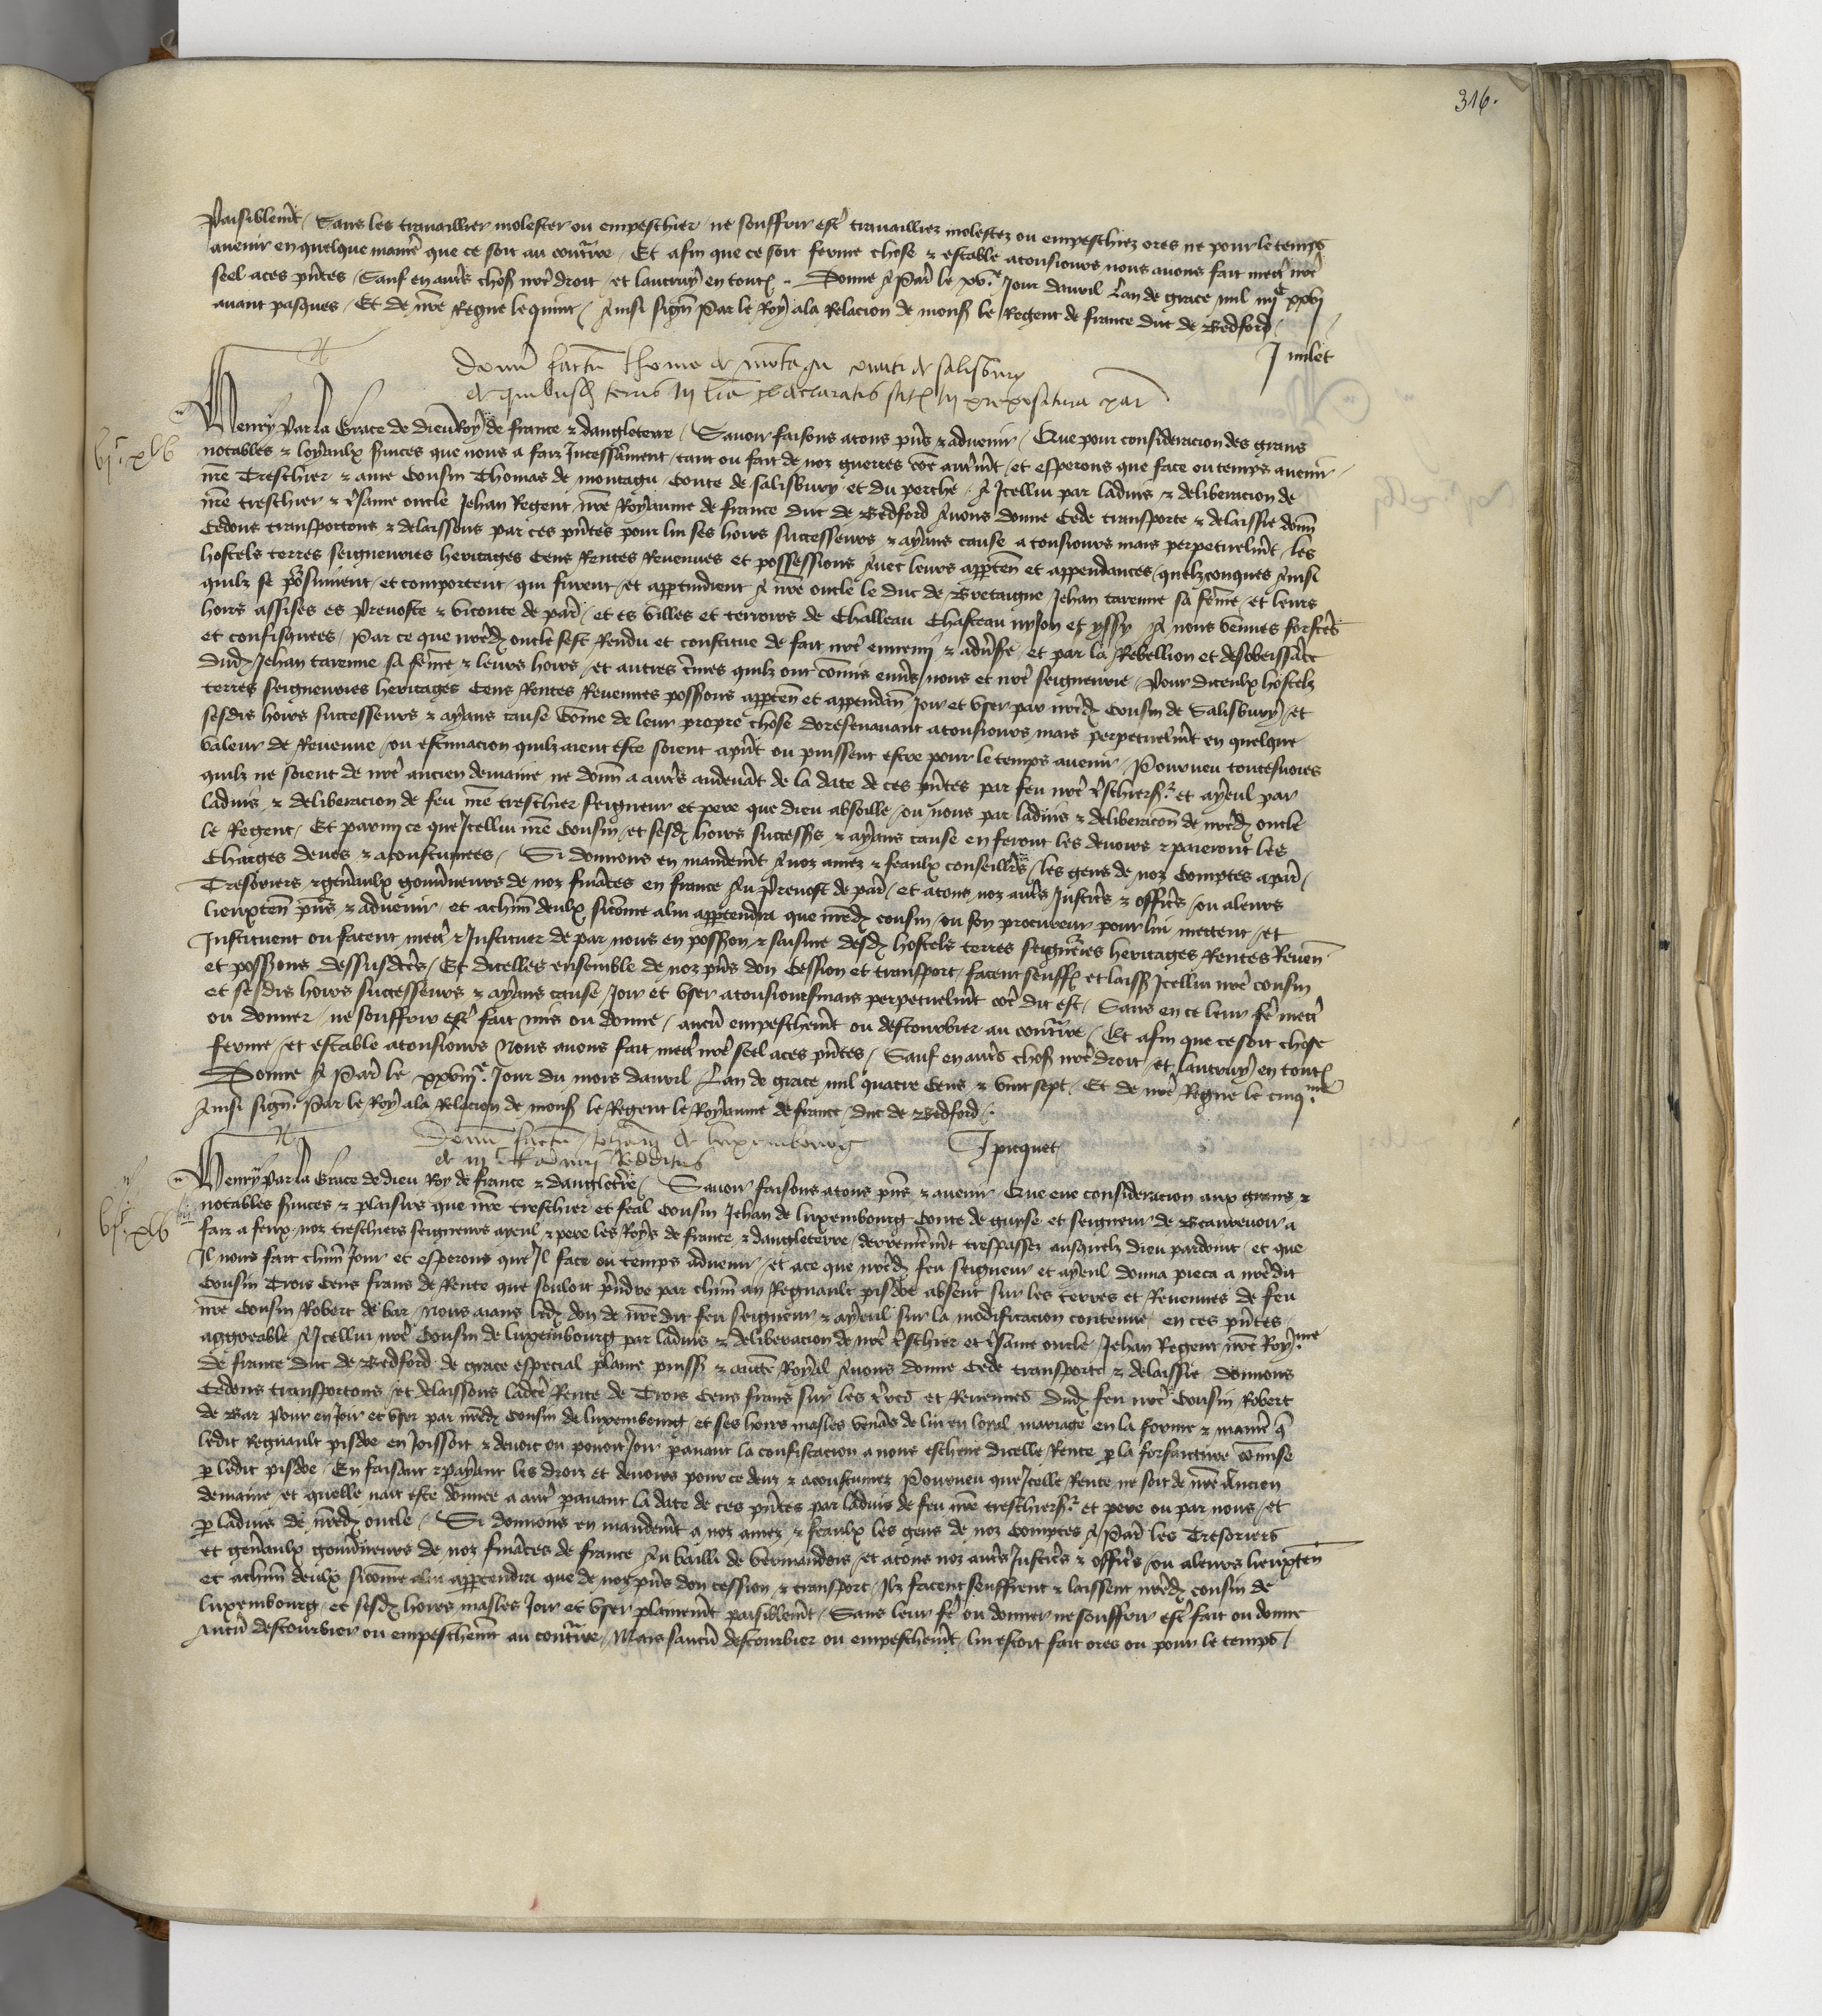 316.
Paisiblemt / Sans les travaillier molester ou empeschier / ne souffrir estre travailliez molestez ou empeschiez ores ne pour le temps
avenir en quelque manie que ce soit au contraire / Et afin que ce soit ferme chose & estable atousiours nous avons fait mectre nre
seel a ces pntes / Sauf en autres choses nre droit / et lautruy en toutes . Donne A Paris le xve Jour davril Lan de grace mil iiijc xxvj
avant pasques / Et de nre Regne le quint / Ainsi signe Par le Roy a la Relacion de mons le Regent de france duc de Bedford /
J milet
Donum factum thome de montagu comiti de salisbury
de quibusdam terris in lra declaratis sitis in prepositura par
vjc xlv
Henry Par la Grace de Dieu Roy de france & dangleterre / Savoir faisons a tous pns & advenir / Que pour consideracion des grans
notables & loyaulx services que nous a faiz Incessamment / tant ou fait de noz guerres come autremt / et esperons que face ou temps avenir /
nre Treschier & ame Cousin Thomas de montagu Conte de salisbury et du perche / A Icellui par ladvis & deliberacion de
nre treschier & tresame oncle Jehan Regent nre Royaume de france duc de Bedford Avons donne Cede transporte & delaissie donn
Cedons transportons & delaissons par ces pntes pour lui ses hoirs successeurs & ayans cause a tousiours mais perpetuelmt / les
hostels terres seigneuries heritages Cens Rentes Revenues et possessions Avec leurs apparten et appendances / quelzconques Ainsi
quilz se poursuivent / et comportent / qui furent / et appartindrent A nre oncle le duc de Bretaigne / Jehan tarenne sa feme / et leurs
hoirs assises es Prevoste & viconte de paris / et es villes et terroirs de Challeau Chasteau nyjon et yssy A nous venues forfctes
et confisquees / Par ce que nredit oncle sest Rendu et constitue de fait nre ennemi & adversre / et par la Rebellion et desobeissance
dudit Jehan tarenne sa feme & leurs hoirs / et autres crimes quilz ont comis envers nous et nre seigneurie / Pour diceulx hostelz
terres seigneuries heritages Cens Rentes Revenues possessions apparten et appendan / Joir et user par nredit Cousin de Salisbury / et
sesdis hoirs successeurs & ayans cause Come de leur propre chose doresenavant atousiours mais perpetuelmt en quelque
valeur de Revenue / ou estimacion quilz aient este soient apnt ou puissent estre pour le temps avenir / Pourveu toutesvoies
quilz ne soient de nre ancien demaine ne donn a autres audevant de la date de ces pntes par feu nre treschier sr et ayeul par
ladvis & deliberacion de feu nre treschier Seigneur et pere que dieu absoille / ou nous par ladvis & deliberacion de nredit oncle
le Regent / Et parmi ce que Icellui nre Cousin / et sesdis hoirs successrs & ayans cause en feront les devoirs & paieront les
Charges deues & acoustumees / Si donnons en mandemt A noz amez & feaulx conseillers / les gens de noz Comptes a paris /
Tresoriers & genaulx gouverneurs de noz finances en france Au Prevost de paris / et a tous noz autres Justiciers & officiers / ou a leurs
lieuxten pns & advenir et achun deulx sicome a lui appartendra que nredit cousin / ou son procureur pour lui mettent / et
Instituent ou facent mectre & Instituer de par nous en possession & saisine desdis hostels terres seigneuries heritages Rentes Reven
et possessions dessusdctes / Et dicelles ensemble de noz pns don Cession et transport / facent seuff et laiss Icellui nre cousin
et sesdis hoirs successeurs & ayans cause / Joir et user atousiours mais perpetuelmt come dit est / Sans en ce leur fere mectre
ou donner / ne souffrir estre fait mis ou donne / aucun empeschemt ou destourbier au contraire / Et afin que ce soit chose
ferme / et estable atousiours Nous avons fait mectre nre seel a ces pntes / Sauf en autres choses nre droit / et lautruy en toutes
Donne A Paris le xxviije Jour du mois davril Lan de grace mil quatre Cens & vint sept / Et de nre Regne le cinqme
Ainsi signe Par le Roy a la Relacion de mons le Regent le Royaume de france / duc de Bedford /.
J picquet
Donum factum Johanni de luxembourg
de iijc franc Redditus
vjc xlvj
Henry Par la Grace de dieu Roy de france & dangleterre / Savoir faisons a tous pns & avenir / Que eue consideracion aux grans &
notables services & plaisirs que nre treschier et feal Cousin Jehan de Luxembourg Conte de guyse et seigneur de Beaurevoir a
faiz a feux noz treschiers seigneurs ayeul & pere les Roys de france & dangleterre / derreniermt trespassez ausquelz dieu pardoint / et que
Il nous fait chun Jour et esperons que Il face ou temps advenir / et a ce que nredit feu seigneur et ayeul donna pieca a nredit
Cousin Trois Cens frans de Rente que souloit prendre par chun an Regnault pisdoe absent sur les terres et Revenues de feu
nre Cousin Robert de bar / Nous aians ledit don de nredit feu seigneur & ayeul sur la modificacion contenue en ces pntes
aggreable A Icellui nre Cousin de Luxembourg par ladvis & deliberacion de nre treschier et tresame oncle Jehan Regent nre Royme
de france duc de Bedford de grace especial plaine puissance & aucte Royal Avons donne Cede transporte & delaissie donnons
Cedons transportons / et delaissons ladicte Rente de Trois Cens frans sur les terres et Revenues dudit feu nre Cousin Robert
de Bar Pour en Joir et user par nredit Cousin de luxembourg / et ses hoirs masles venans de lui en loyal mariage en la forme & maniere que
ledit Regnault pisdoe en Joissoit & devoit ou povoit Joir pavant la confiscacion a nous eschene dicelle Rente par la forfaicture comise
par ledit pisdoe / En faisant & payant les droiz et devoirs pour ce deuz & acoustumez Pourveu que Icelle Rente ne soit de nre Ancien
demaine / et quelle nait este donnee a autre pavant la date de ces pntes par ladvis de feu nre treschier sr et pere ou par nous / et
par ladvis de nredit oncle / Si donnons en mandemt a noz amez & feaulx les gens de noz Comptes A Paris les Tresoriers
et genaulx gouverneurs de noz finances de france Au bailli de vermandois / et a tous noz autres Justiciers & officiers / ou a leurs lieuxten
et achun deulx sicome a lui appartendra que de noz pns don cession & transport / Ilz facent seuffrent & laissent nredit cousin de
luxembourg / et sesdis hoirs masles Joir et user plainemt paisiblemt / Sans leur fere ou donner ne souffrir estre fait ou donne
Aucun destourbier ou empeschemt au contraire / Mais saucun destourbier ou empeschemt lui estoit fait ores ou pour le temps /